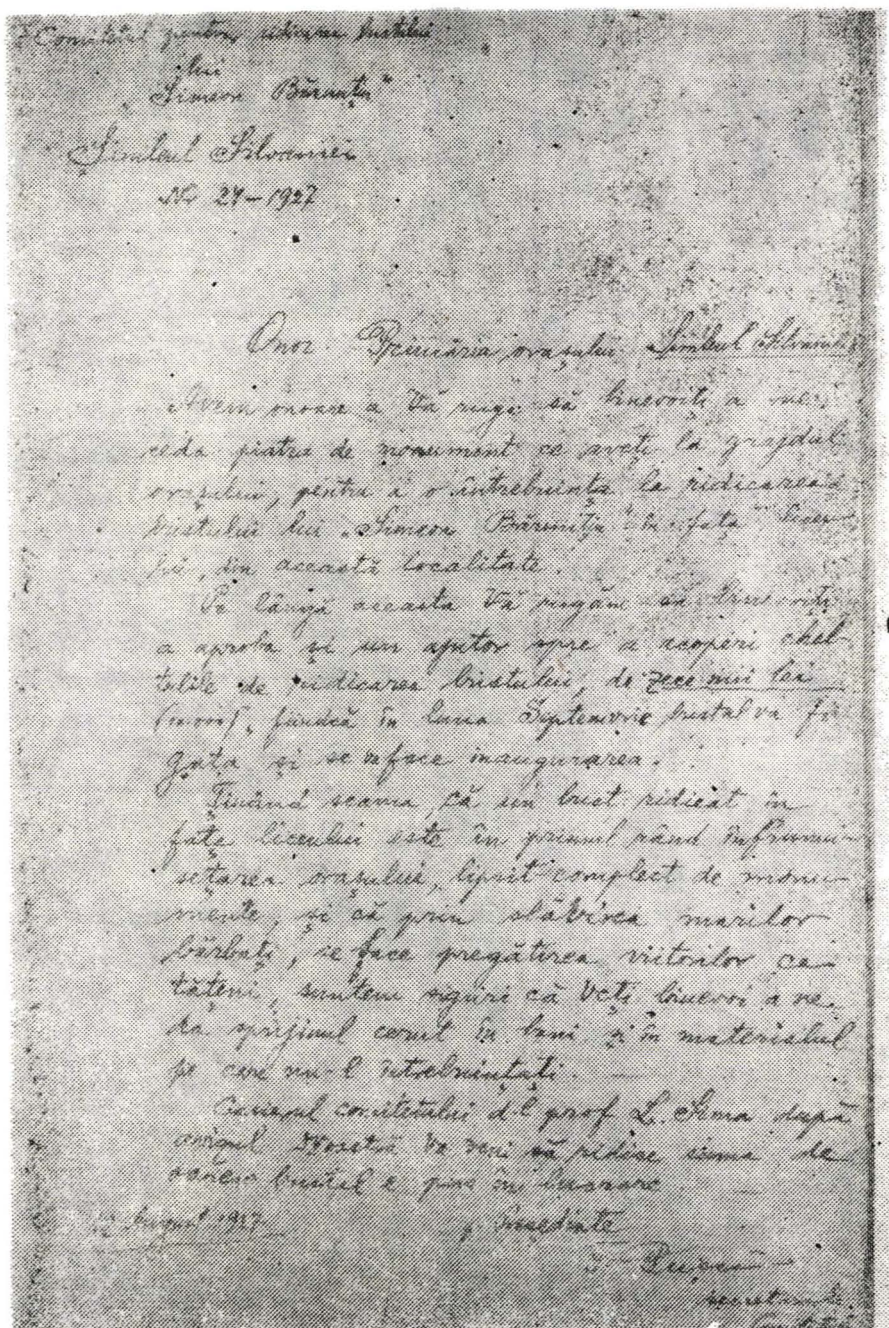 Comitetul pentru ridicarea bustului
lui
"Simeon Bărnuțiu"
Șimleul Silvaniei
No 24-1927
Onor. Primăria orașului Șimleul Silvaniei
Avem onoare a Vă ruga să binevoiți a ne
ceda piatra de monument ce aveți la grajdul
orașului, pentru a o întrebuința la ridicarea
bustului lui "Simeon Bărnuțiu" în fața liceu-
lui, din această localitate.
Pe lângă aceasta Vă rugăm să binevoiți
a aproba și un ajutor spre a acoperi chel-
telile de ridicarea bustului, de zece mii lei
(10.000), fiindcă în luna Septemvrie bustul va fi
gata și se va face inaugurarea.
Ținând seama, că un bust ridicat în
fața liceului este în primul rând înfrumu-
sețarea orașului, lipsit complect de monu-
mente, și că prin slăvirea marilor
bărbați, se face pregătirea viitorilor ce-
tățeni, suntem siguri că Veți binevoi a ne
da sprijinul cerut în bani și în materialul
pe care nu-l întrebuințați.
Casierul comitetului d-l prof L. Sima după
avizul Dvoastră va veni să ridice suma de
oarece bustul e pus în lucrare
August 1927
p. Președinte
secretarul